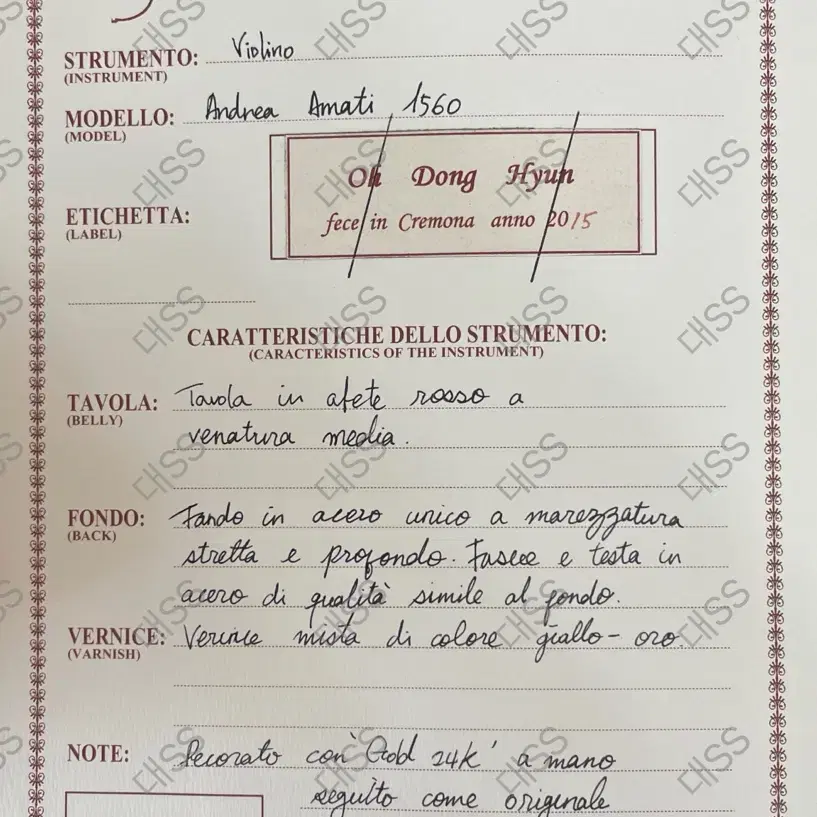 STRUMENTO: Violino
(INSTRUMENT)
MODELLO: Andrea Amati 1560
(MODEL)
Oh Dong Hyun
ETICHETTA: fece in Cremona anno 2015
(LABEL)
CARATTERISTICHE DELLO STRUMENTO:
(CARACTERISTICS OF THE INSTRUMENT)
TAVOLA: Tavola in abete rosso a
(BELLY)
venatura media.
FONDO: Fondo in acero unico a marezzatura
(BACK)
stretta e profondo. Fasce e testa in
acero di qualità simile al fondo.
VERNICE: Vernice mista di colore giallo-oro.
(VARNISH)
NOTE: Decorato con 'Gold 24K' a mano
seguito come originale
CHSS